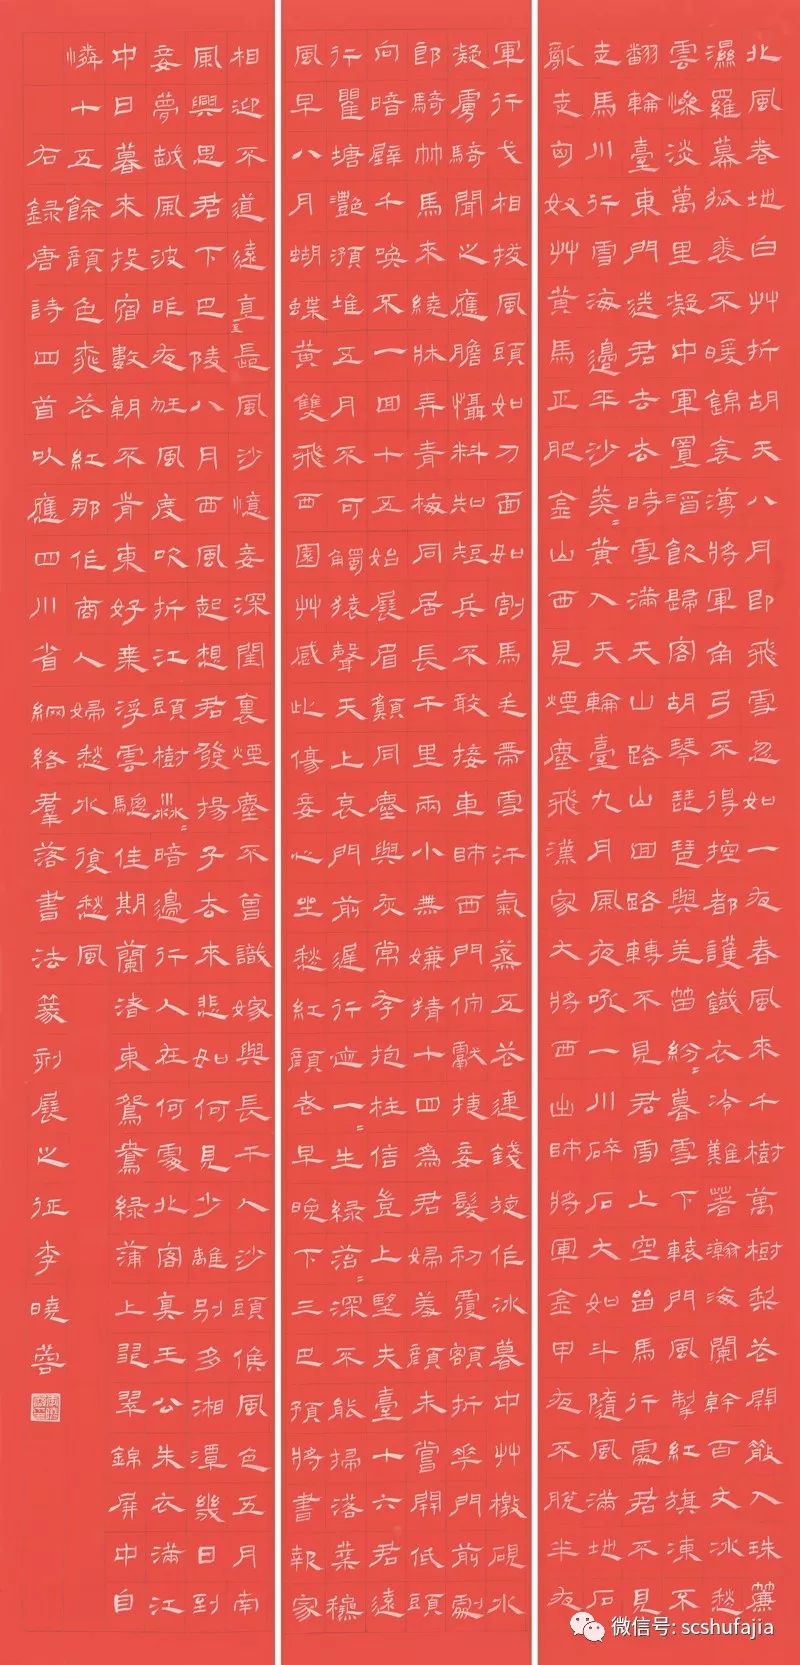 北風卷地白艸折胡天八月即飛雪忽如一夜春風來千樹萬樹梨花開散入珠簾
濕羅幕狐裘不暖錦衾薄將軍角弓不得控都護鐵衣冷難著瀚海闌幹百丈冰愁
雲慘淡萬里凝中軍置酒飲歸客胡琴琵琶與羌笛紛=暮雪下轅門風掣紅旗凍不
翻輪臺東門送君去去時雪滿天山路山回路轉不見君雪上空留馬行處君不見
走馬川行雪海邊平沙莽=黃入天輪臺九月風夜吼一川碎石大如斗隨風滿地石
亂走匈奴艸黃馬正肥金山西見煙塵飛漢家大將西出師將軍金甲夜不脫半夜
軍行戈相撥風頭如刀面如割馬毛帶雪汗氣蒸五花連錢旋作冰幕中艸檄硯水
凝虜騎聞之應膽懾料知短兵不敢接車師西門佇獻捷妾髮初覆額折華門前劇
郎騎竹馬來繞牀弄青梅同居長干里兩小無嫌猜十四為君婦羞顏未嘗開低頭
向暗壁千喚不一回十五始展眉願同塵與灰常存抱柱信豈上望夫臺十六君遠
行瞿塘灩澦堆五月不可觸猿聲天上哀門前遲行跡一=生綠苔=深不能掃落葉穐
風早八月蝴蝶黃雙飛西園艸感此傷妾心坐愁紅顏老早晚下三巴預將書報家
相迎不道遠直至長風沙憶妾深閨裏煙塵不曾識嫁與長干人沙頭候風色五月南
風興思君下巴陵八月西風起想君發揚子去來悲如何見少離別多湘潭幾日到
妾夢越風波昨夜狂風度吹折江頭樹淼=暗邊行人在何處北客真王公朱衣滿江
中日暮來投宿數朝不肯東好乘浮雲驄佳期蘭渚東鴛鴦綠蒲上翡翠錦屏中自
憐十五餘顏色桃花紅那作商人婦愁水復愁風
右錄唐詩四首以應四川省網絡羣落書法篆刻展之征李曉蓉
微信号: scshufajia